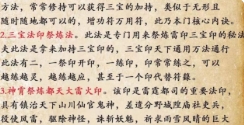 方法，常常修持可以获得三宝的加持，类似于无形且
随时随地都可以的，增功符万用符，此乃本门核心内诀。
2.三宝法印祭炼法。此法是专门用来祭炼雷霆三印的秘法
夫此法是常来加持三宝的，三宝印天下通用方法通行
此法有二，一部符印，一部令印，常常修炼之，可以
越炼越灵，越炼越应，甚至于一个印代替符箓。
3.神霄祭炼都天大雷火印。该印是雷霆都司的重要法印，
具有镇治天下山川仙官鬼神，差遣分野城隍庙社吏兵，
役使风雷，驱除神怪，诛斩妖魅，祈求雨雪风晴的巨大